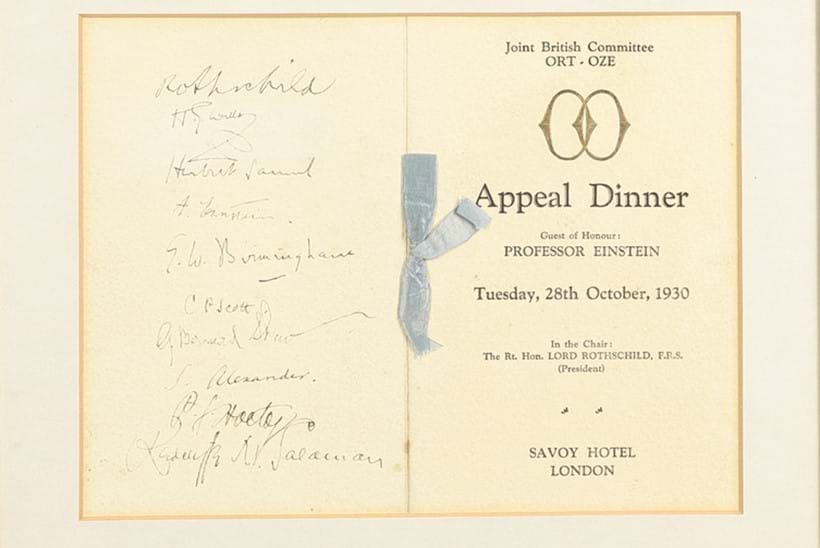 Rothschild
H G Wells
Herbert Samuel
A. Einstein.
E. W. Birmingham
C P Scott
G Bernard Shaw
S. Alexander.
P. J. Hartog
Redcliffe N. Salaman
Joint British Committee
ORT - OZE
Appeal Dinner
Guest of Honour:
PROFESSOR EINSTEIN
Tuesday, 28th October, 1930
In the Chair:
The Rt. Hon. LORD ROTHSCHILD, F.R.S.
(President)
SAVOY HOTEL
LONDON